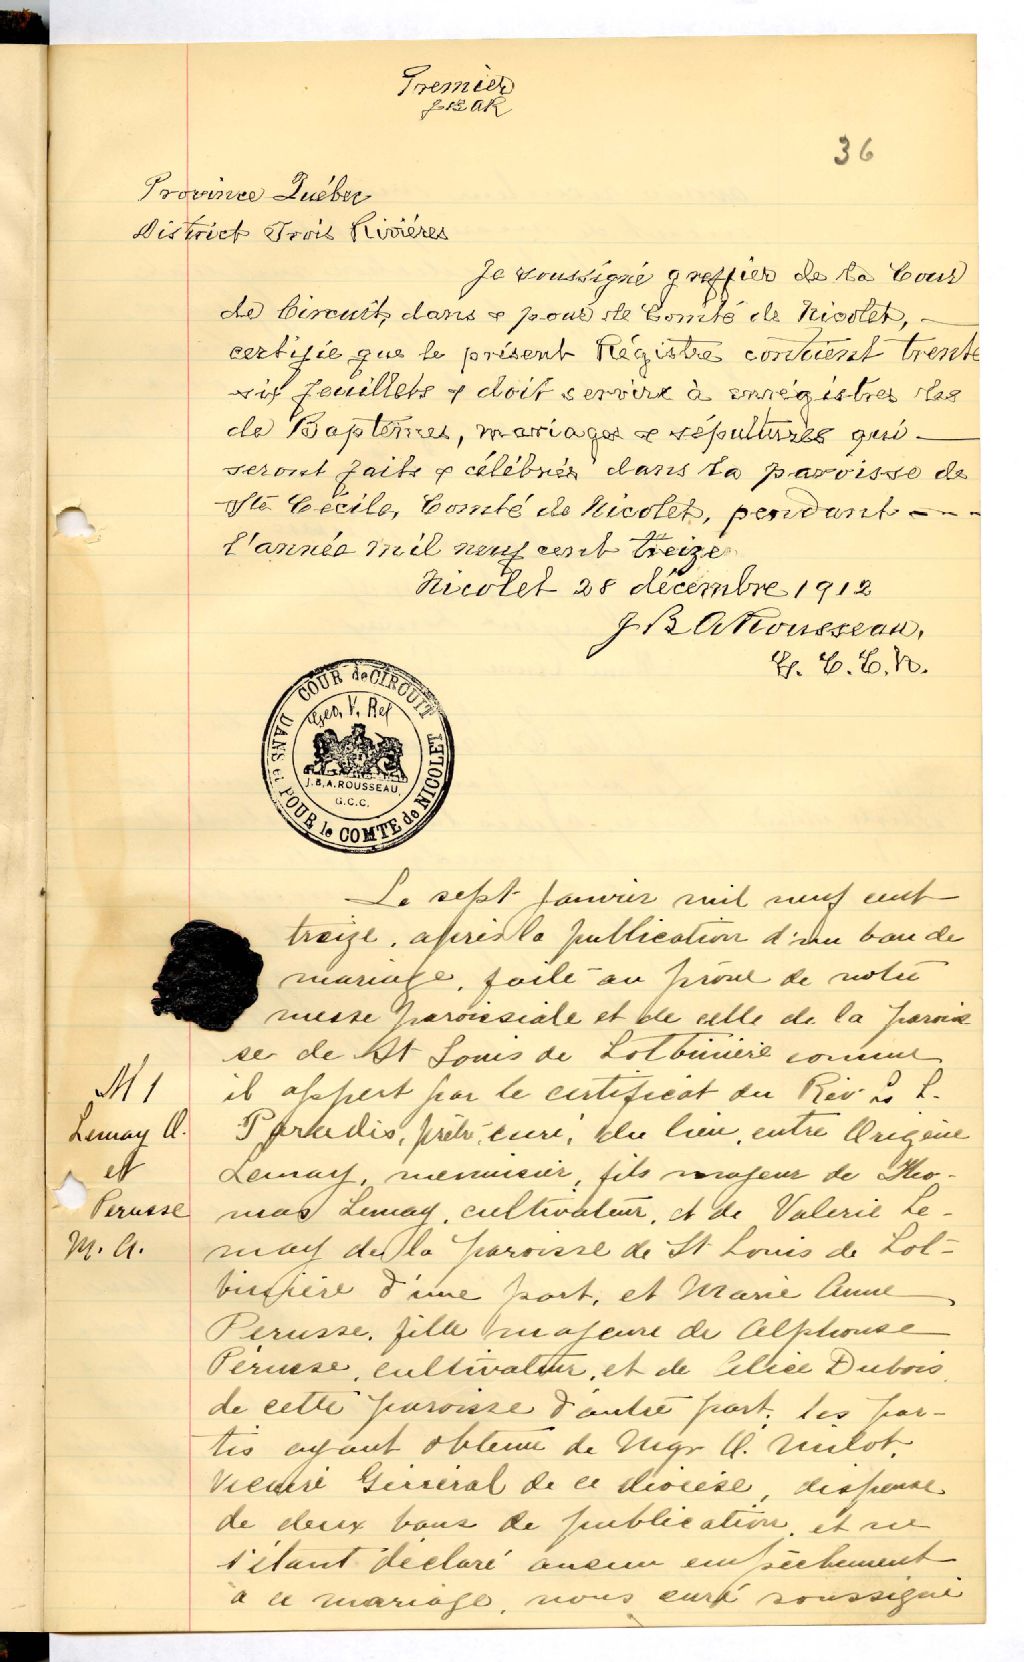 Premier
JBAR
36
Province Québec
District Trois Riviéres
Je soussigné greffier de la Cour
de Circuit, dans & pour le Comté de Nicolet,
certifie que le présent Régistre contient trente
six feuillets & doit servir à enrégistrer les
de Baptêmes, mariages & sépultures qui
seront faits & célébrés dans la paroisse de
Ste Cécile, Comté de Nicolet, pendant
l'année mil neuf cent treize
Nicolet 28 décembre 1912
J B A Rousseau,
G. C. C. N.
COUR de CIRCUIT
DANS et POUR le COMTE de NICOLET
Geo. V. Rex
J.B.A. ROUSSEAU,
G.C.C.
Le sept janvier mil neuf cent
treize, après la publication d'un ban de
mariage, faite au prône de notre
messe paroissiale et de celle de la parois
se de St Louis de Lotbinière comme
il appert par le certificat du Rév L.
Paradis, prêtre, curé, du lieu, entre Origène
Lemay, menuisier, fils majeur de Tho-
mas Lemay, cultivateur, et de Valerie Le-
may de la paroisse de St Louis de Lot-
binière d'une part, et Marie Anne
Perusse, fille majeure de Alphonse
Pérusse, cultivateur, et de Alice Dubois
de cette paroisse d'autre part, les par-
tis ayant obtenu de Mgr A. Milot,
Vicaire Général de ce diocèse, dispense
de deux bans de publication, et ne
s'étant déclaré aucun empêchement
à ce mariage, nous curé soussigné
M 1
Lemay O.
et
Perusse
M. A.